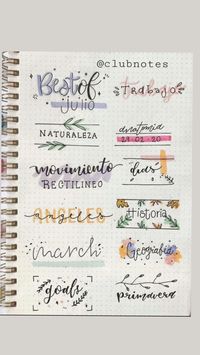 @clubnotes
Best of
julio
Trabajo
NATURALEZA
anatomía
29·02·20
movimiento
RECTILINEO
dias
ANGELES
angeles
Historia
march
Geografia
goals
primavera